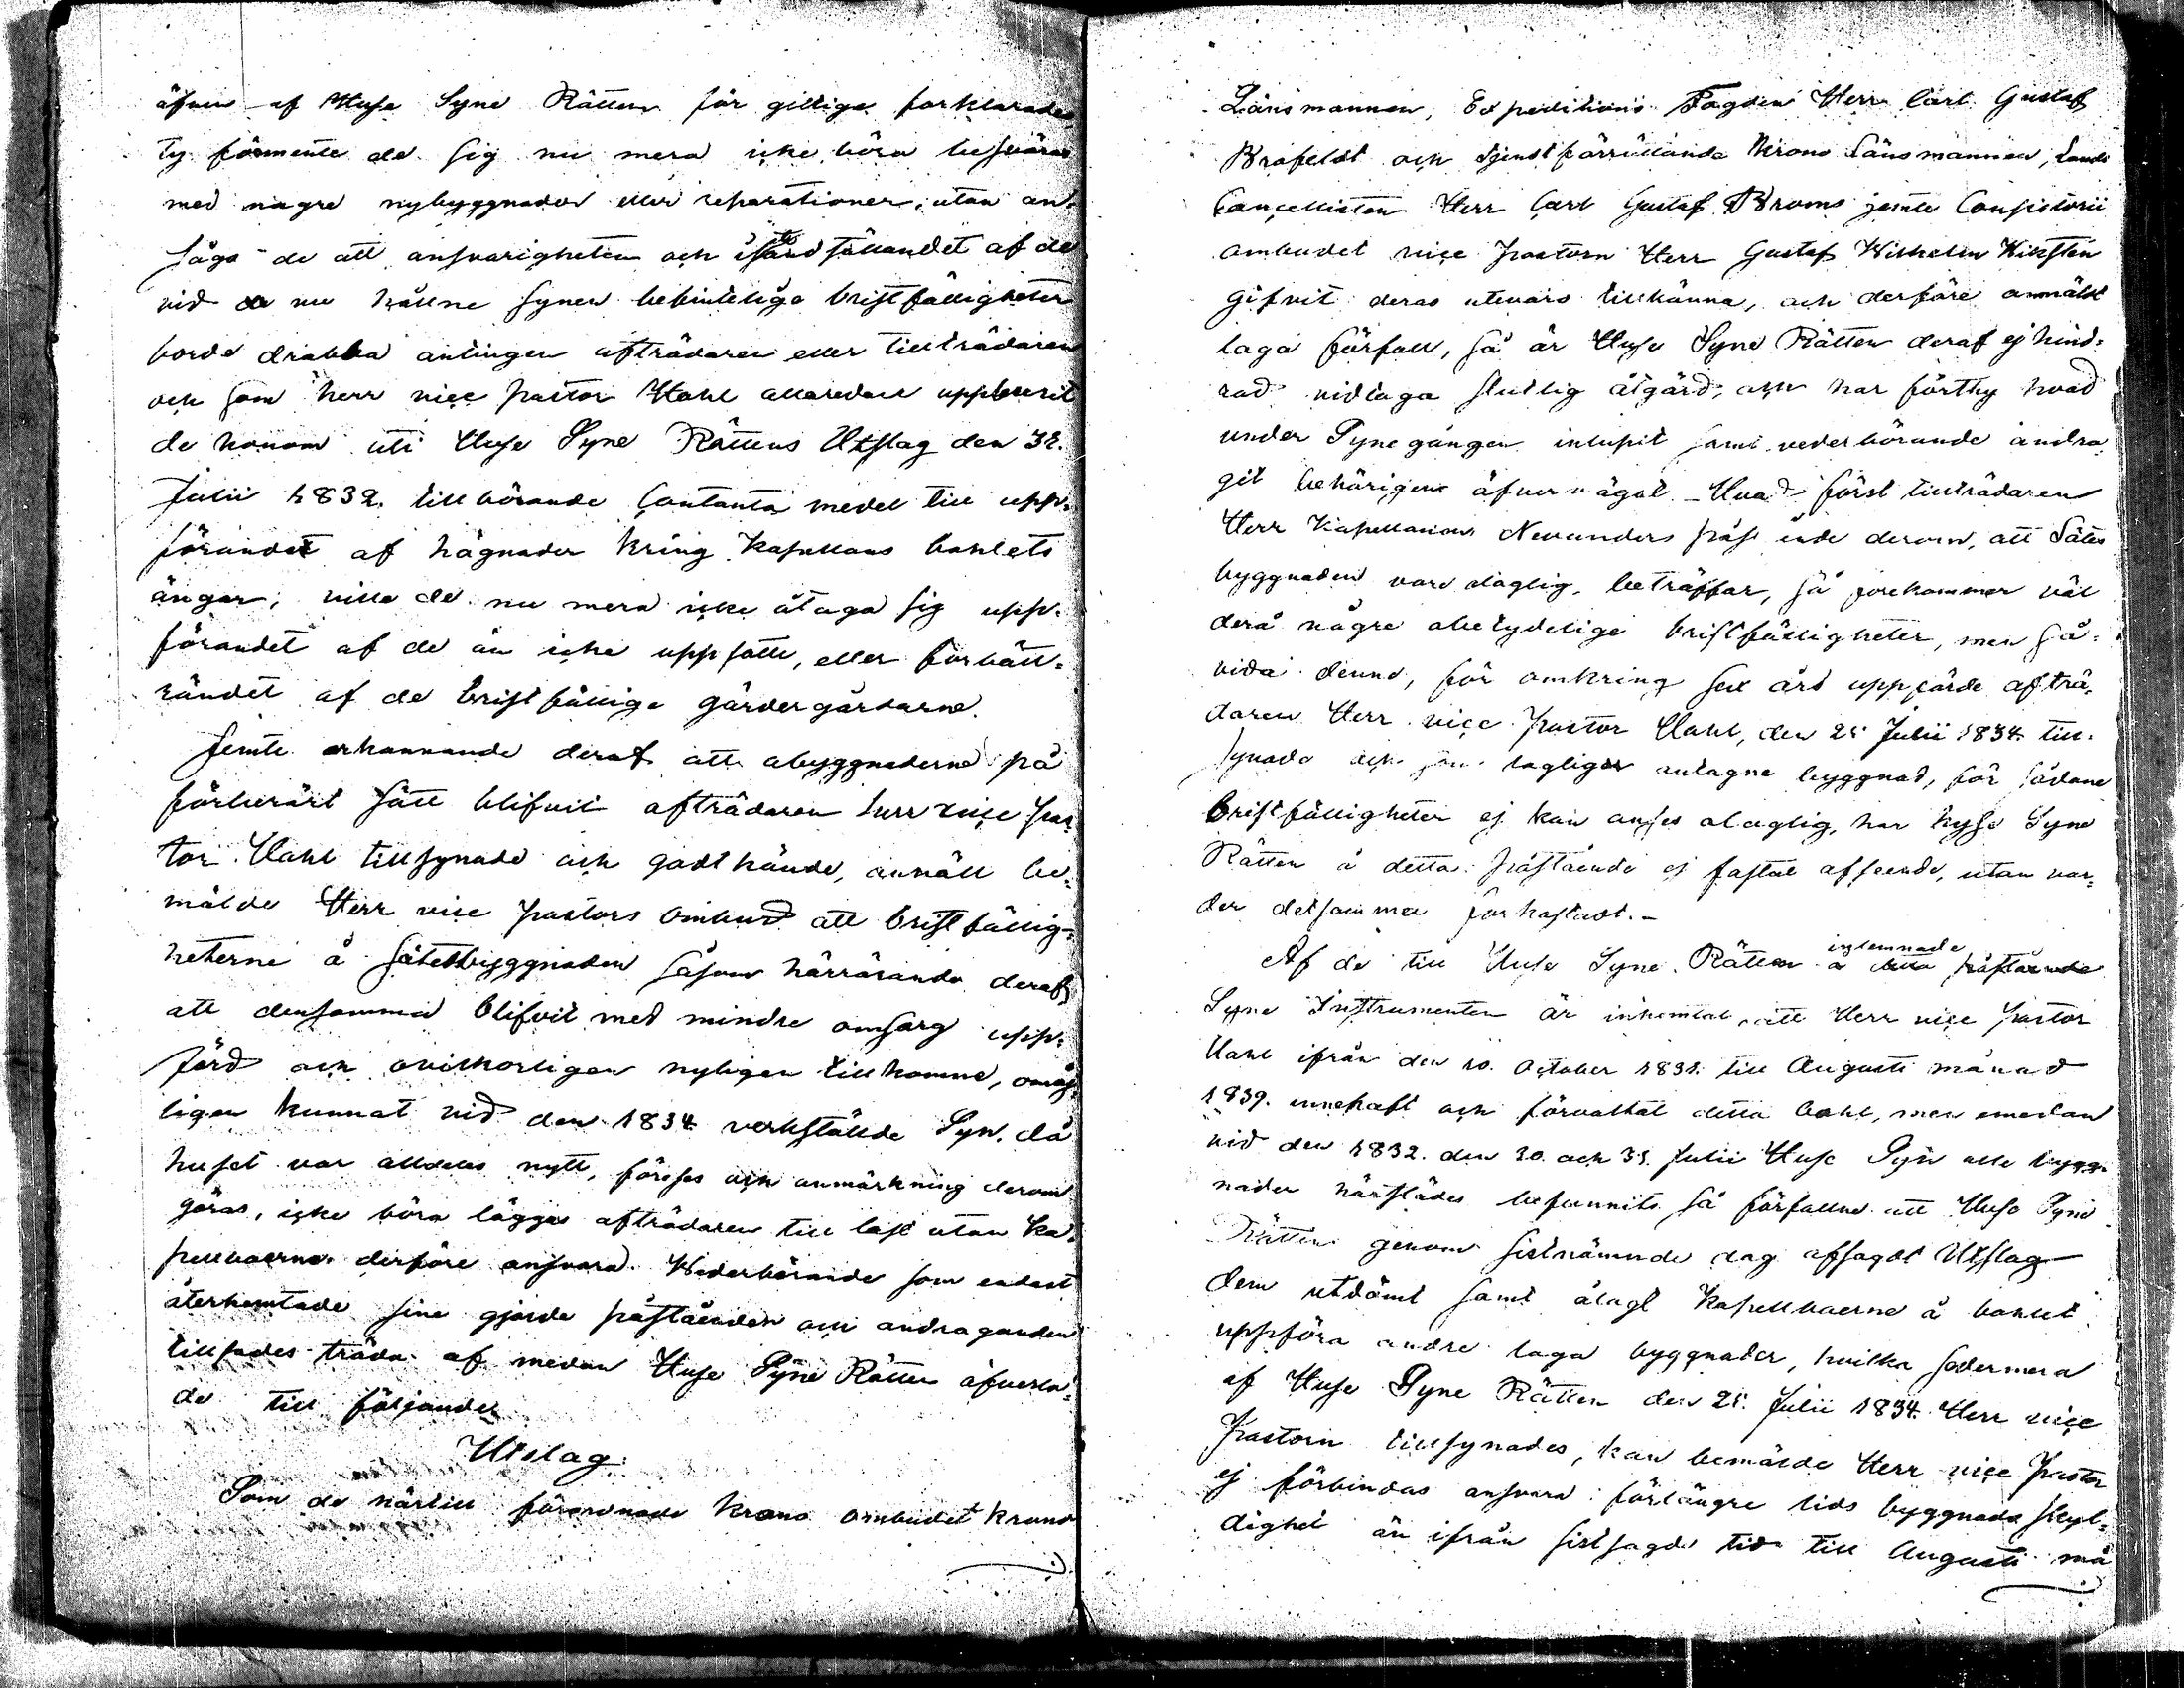 äfven af Huse Syne Rätten för giltiga förklarades
ty förmente de sig nu mera icke böra besväras
med nagre nybyggnader eller reparationer, utan an-
såga de att ansvarigheten och iståndsättandet af de
vid de nu hållne synen befintelige bristfälligheter
borde drabba antingen afträdaren eller tillträdaren
och som herr vice pastor Hahl allaredan uppburit
de honom uti Huse Syne Rättens Utslag den 31.
Julii 1832. tillkörande Contanta medel till upp-
förandet af hägnader kring Kapellans bohlets
ängar; ville de nu mera icke åtaga sig upp-
förandet af de än icke uppsatte, eller förbätt-
randet af de bristfällige gärdesgårdarne.
Jemte erkannande deraf att åbyggnaderne på
förberört sätt blifvit afträdaren herr vice pas-
tor Hahl tillsynade och godkände, anmält be-
mälde Herr vice pastors ombud att bristfällig-
heterne å sätesbyggnaden såsom härrörande deraf
att densamma blifvit med mindre omsorg upp-
förd och ovilkorligen nyligen tillkomne, omöj-
ligen kunnat vid den 1834 verkställde Syn, då
huset var alldeles nytt, förses och anmärkning derom
göras, icke böra läggas afträdaren till last utan Ka-
pellboerne derföre ansvara. Wederbörande som endast
återhemtade sine gjorde påståenden och andraganden
tillsades träda af medan Huse Syne Rätten öfverla-
de till följande
Utslag.
Som de härtill förordnade Krono ombudet Krono
Länsmannen, Expeditions Fogden Herr Carl Gustaf
Brofeldt och tjenstförrättande Krono Länsmannen, Lands
Cancellisten Herr Carl Gustaf Broms jemte Consistorii
ombudet vice pastorn Herr Gustaf Wilhelm Kihlsten
gifvit deras utevaro tillkänna, och derföre anmält
laga förfall, så är Huse Syne Rätten deraf ej hind-
rad vidtaga slutlig åtgärd, och har förthy hvad
under Synegången inlupit samt vederbörande andra-
git behörigen öfvervägat. Hvad först tillträdaren
Herr Kapellanens Nevanders påståënde derom, att Sätes
byggnaden vore olaglig, beträffar, så förekommer väl
derå någre obetydelige bristfälligheter, men så-
vida denne, för omkring sex års uppförde afträ-
daren Herr vice Pastor Hahl, den 25 Julii 1834. till-
synade och som lagligen antagne byggnad, för sådane
bristfälligheter ej kan anses olaglig, har hyse Syne
Rätten å detta påståënde ej fästat afseende, utan var-
der detsamma förkastadt.
inlemnade
Af de till Huse Syne Rätten å detta påstående
Syne Instrumenten är inhemtat, att Herr vice pastor
Hahl ifrån den 10. October 1831. till Augusti månad
1839. innehaft och förvaltat detta bohl, men emedan
vid den 1832. den 30. och 31. Julii Huse Syn alle bygg-
nader härstädes befunnits så förfallne att Huse Syne
Rätten genom sistnämnde dag afsagdt Utslag
dem utdömt samt ålagt Kapellboerne å bohlet
uppföra andre laga byggnader, hvilka sedermera
af Huse Syne Rätten den 25. Julii 1834. Herr vice
Pastorn tillsynades, kan bemälde Herr vice Pastor
ej förbindas ansvara förlängre tids byggnads skyl-
dighet än ifrån sistsagde tid till Augusti må